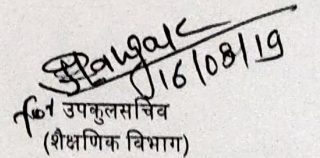 16/08/19
उपकुलसचिव
(शैक्षणिक विभाग)